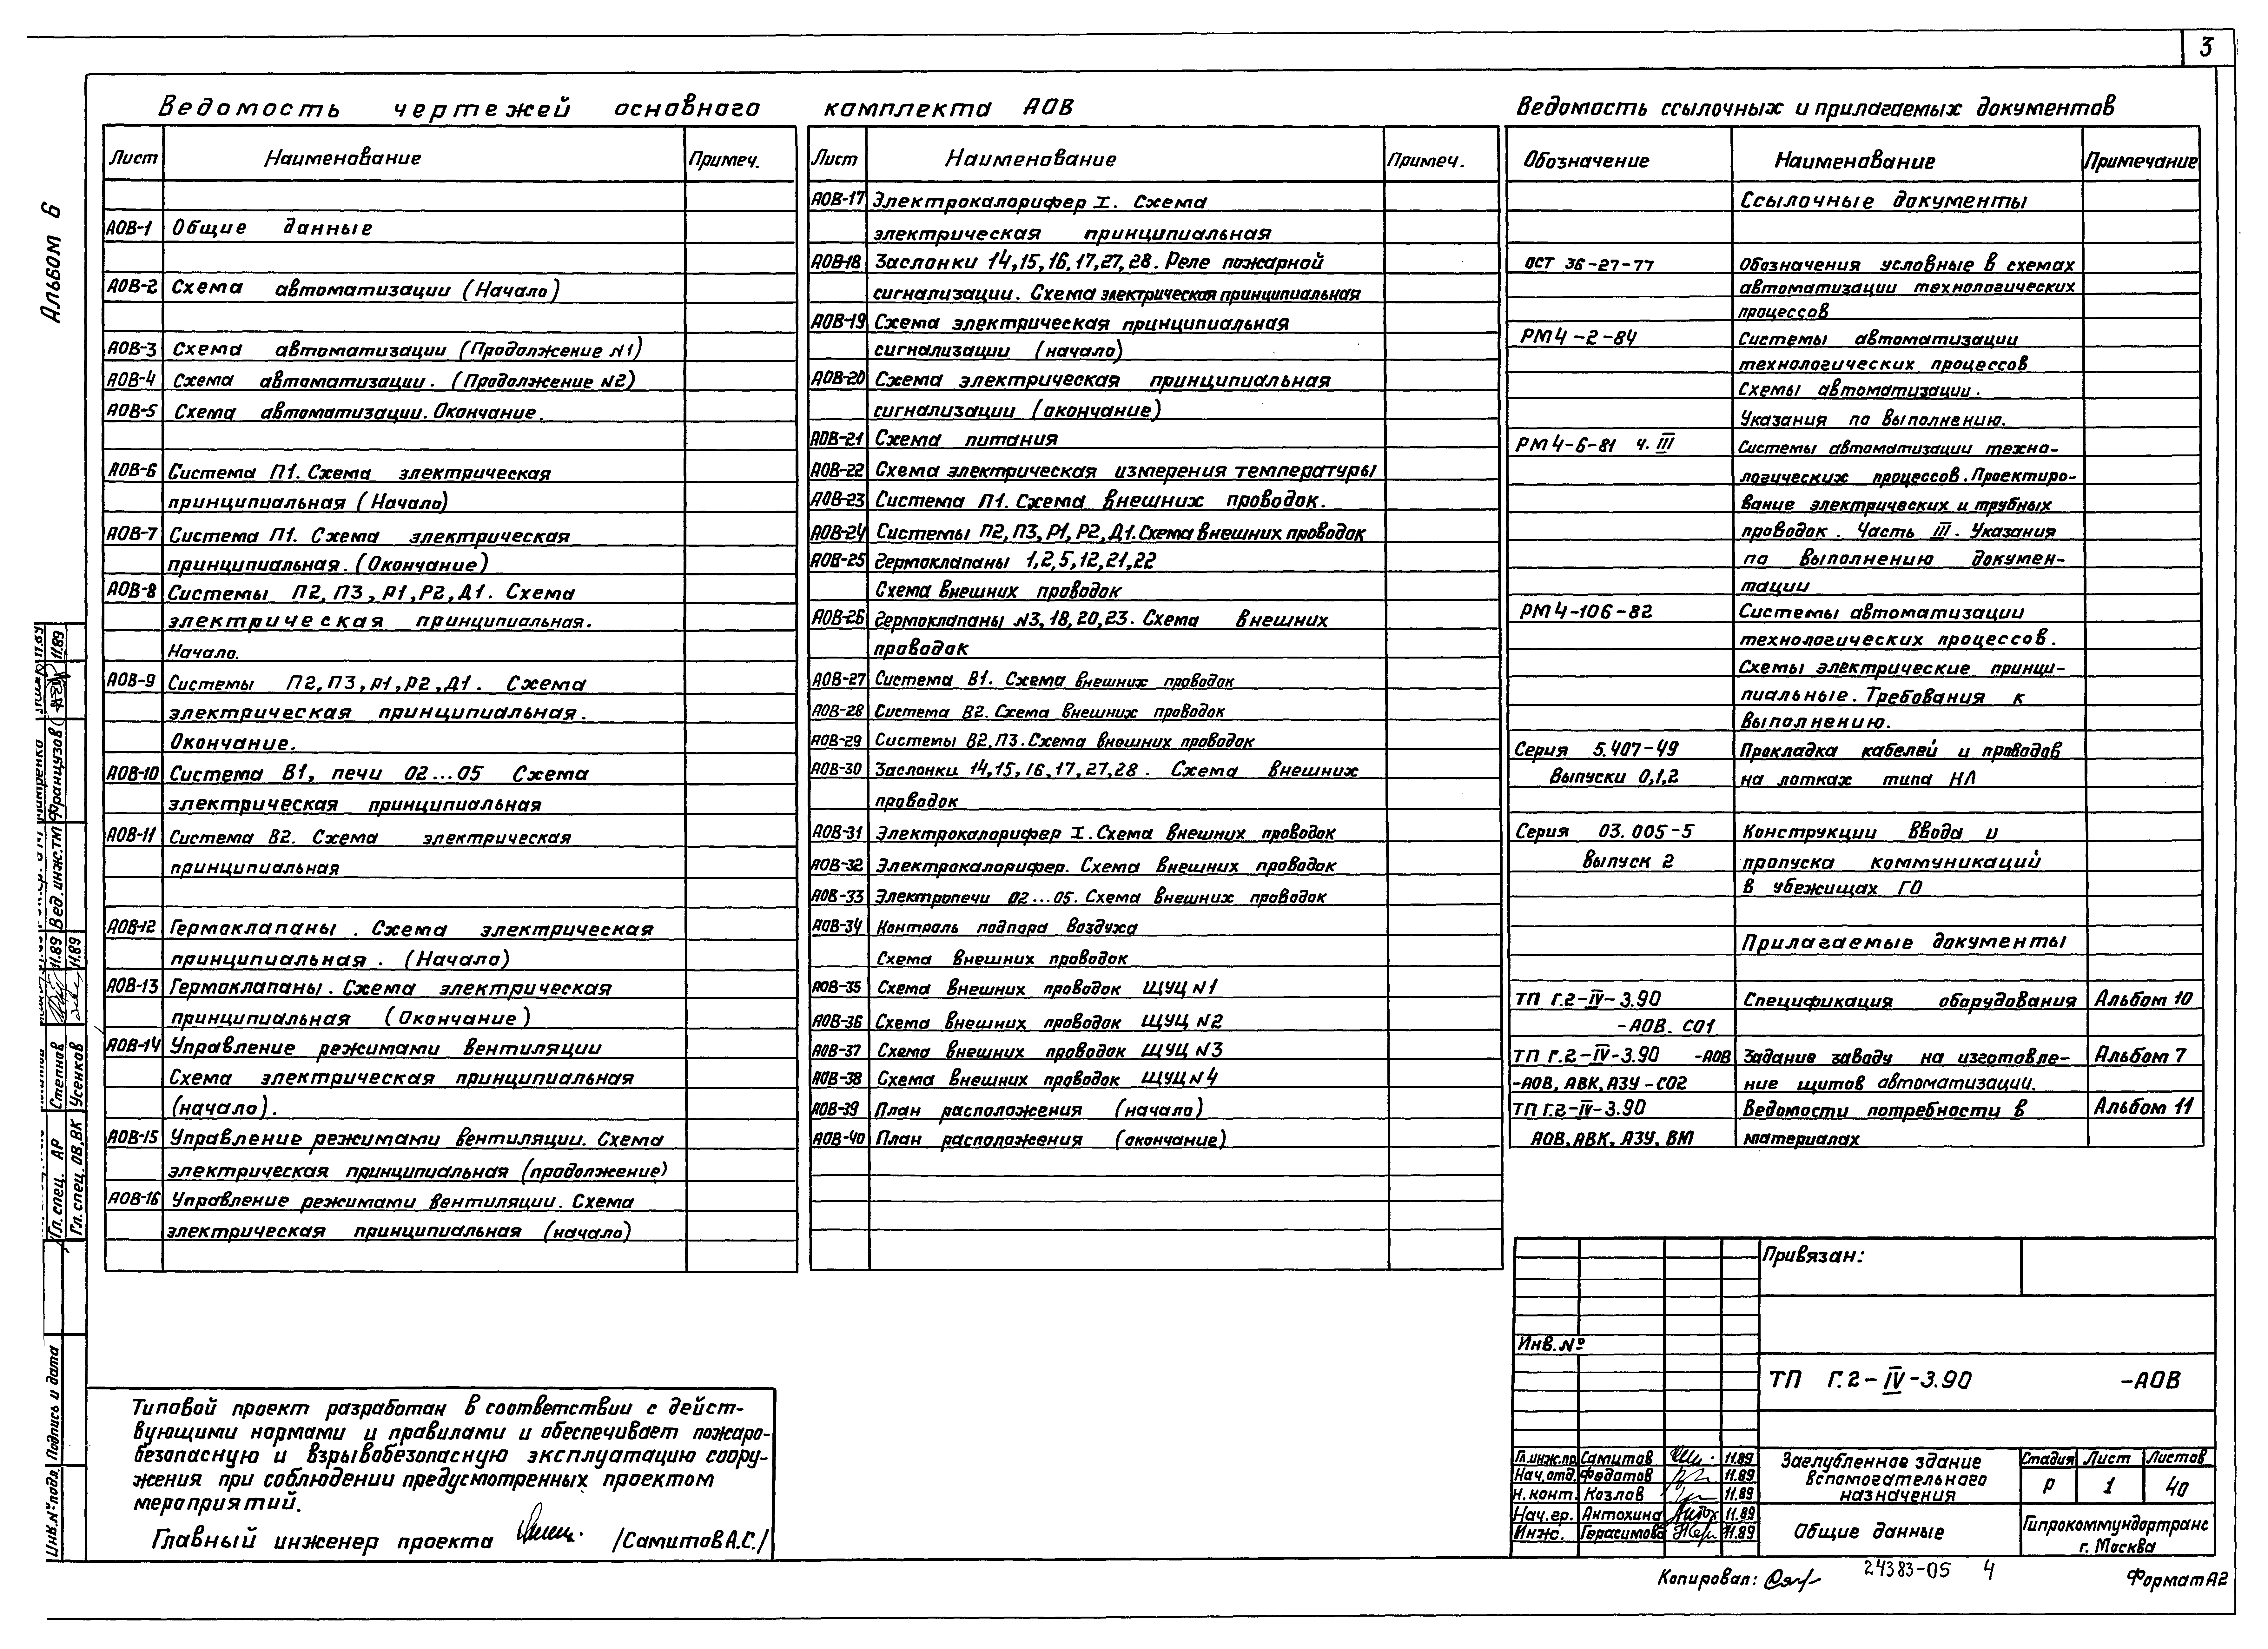 3
Альбом 6
Ведомость чертежей основного комплекта АОВ
Лист Наименование Примеч.
АОВ-1 Общие данные
АОВ-2 Схема автоматизации (Начало)
АОВ-3 Схема автоматизации (Продолжение №1)
АОВ-4 Схема автоматизации. (Продолжение №2)
АОВ-5 Схема автоматизации. Окончание.
АОВ-6 Система П1. Схема электрическая
принципиальная (Начало)
АОВ-7 Система П1. Схема электрическая
принципиальная. (Окончание)
АОВ-8 Системы П2, П3, Р1, Р2, Д1. Схема
электрическая принципиальная.
Начало.
АОВ-9 Системы П2, П3, Р1, Р2, Д1. Схема
электрическая принципиальная.
Окончание.
АОВ-10 Система В1, печи 02...05 Схема
электрическая принципиальная
АОВ-11 Система В2. Схема электрическая
принципиальная
АОВ-12 Гермоклапаны. Схема электрическая
принципиальная. (Начало)
АОВ-13 Гермоклапаны. Схема электрическая
принципиальная (Окончание)
АОВ-14 Управление режимами вентиляции
Схема электрическая принципиальная
(начало).
АОВ-15 Управление режимами вентиляции. Схема
электрическая принципиальная (продолжение)
АОВ-16 Управление режимами вентиляции. Схема
электрическая принципиальная (начало)
Лист Наименование Примеч.
АОВ-17 Электрокалорифер I. Схема
электрическая принципиальная
АОВ-18 Заслонки 14,15,16,17,27,28. Реле пожарной
сигнализации. Схема электрическая принципиальная
АОВ-19 Схема электрическая принципиальная
сигнализации (начало)
АОВ-20 Схема электрическая принципиальная
сигнализации (окончание)
АОВ-21 Схема питания
АОВ-22 Схема электрическая измерения температуры
АОВ-23 Система П1. Схема внешних проводок.
АОВ-24 Системы П2, П3, Р1, Р2, Д1. Схема внешних проводок
АОВ-25 Гермоклапаны 1,2,5,12,21,22
Схема внешних проводок
АОВ-26 Гермоклапаны №3,18,20,23. Схема внешних
проводок
АОВ-27 Система В1. Схема внешних проводок
АОВ-28 Система В2. Схема внешних проводок
АОВ-29 Системы В2, П3. Схема внешних проводок
АОВ-30 Заслонки 14,15,16,17,27,28. Схема внешних
проводок
АОВ-31 Электрокалорифер I. Схема внешних проводок
АОВ-32 Электрокалорифер. Схема внешних проводок
АОВ-33 Электропечи 02...05. Схема внешних проводок
АОВ-34 Контроль подпора воздуха
Схема внешних проводок
АОВ-35 Схема внешних проводок ЩУЦ №1
АОВ-36 Схема внешних проводок ЩУЦ №2
АОВ-37 Схема внешних проводок ЩУЦ №3
АОВ-38 Схема внешних проводок ЩУЦ №4
АОВ-39 План расположения (начало)
АОВ-40 План расположения (окончание)
Ведомость ссылочных и прилагаемых документов
Обозначение Наименование Примечание
Ссылочные документы
ОСТ 36-27-77 Обозначения условные в схемах
автоматизации технологических
процессов
РМ4-2-84 Системы автоматизации
технологических процессов
Схемы автоматизации.
Указания по выполнению.
РМ4-6-81 ч. III Системы автоматизации техно-
логических процессов. Проектиро-
вание электрических и трубных
проводок. Часть III. Указания
по выполнению докумен-
тации
РМ4-106-82 Системы автоматизации
технологических процессов.
Схемы электрические принци-
пиальные. Требования к
выполнению.
Серия 5.407-49 Прокладка кабелей и проводов
Выпуски 0,1,2 на лотках типа НЛ
Серия 03.005-5 Конструкции ввода и
Выпуск 2 пропуска коммуникаций
в убежищах ГО
Прилагаемые документы
ТП Г.2-IV-3.90 Спецификация оборудования Альбом 10
-АОВ. СО1
ТП Г.2-IV-3.90 -АОВ Задание заводу на изготовле- Альбом 7
-АОВ, АВК, АЗУ-СО2 ние щитов автоматизации.
ТП Г.2-IV-3.90 Ведомости потребности в Альбом 11
АОВ, АВК, АЗУ, ВМ материалах
Типовой проект разработан в соответствии с дейст-
вующими нормами и правилами и обеспечивает пожаро-
безопасную и взрывобезопасную эксплуатацию соору-
жения при соблюдении предусмотренных проектом
мероприятий.
Главный инженер проекта /Самитов А.С./
Привязан:
Инв.№
ТП Г.2-IV-3.90 -АОВ
Гл.инж.пр. Самитов 11.89
Нач.отд. Федотов 11.89
Н.конт. Козлов 11.89
Нач.гр. Антохина 11.89
Инж. Герасимова 11.89
Заглубленное здание
вспомогательного
назначения
Стадия Лист Листов
Р 1 40
Общие данные
Гипрокоммундортранс
г. Москва
Копировал:
24383-05 4
Формат А2
Вед.инж.ТМ Французов 11.89
Гл.спец. АР Степнов 11.89
Гл.спец. ОВ,ВК Усенков 11.89
Инв.№ подл. Подпись и дата